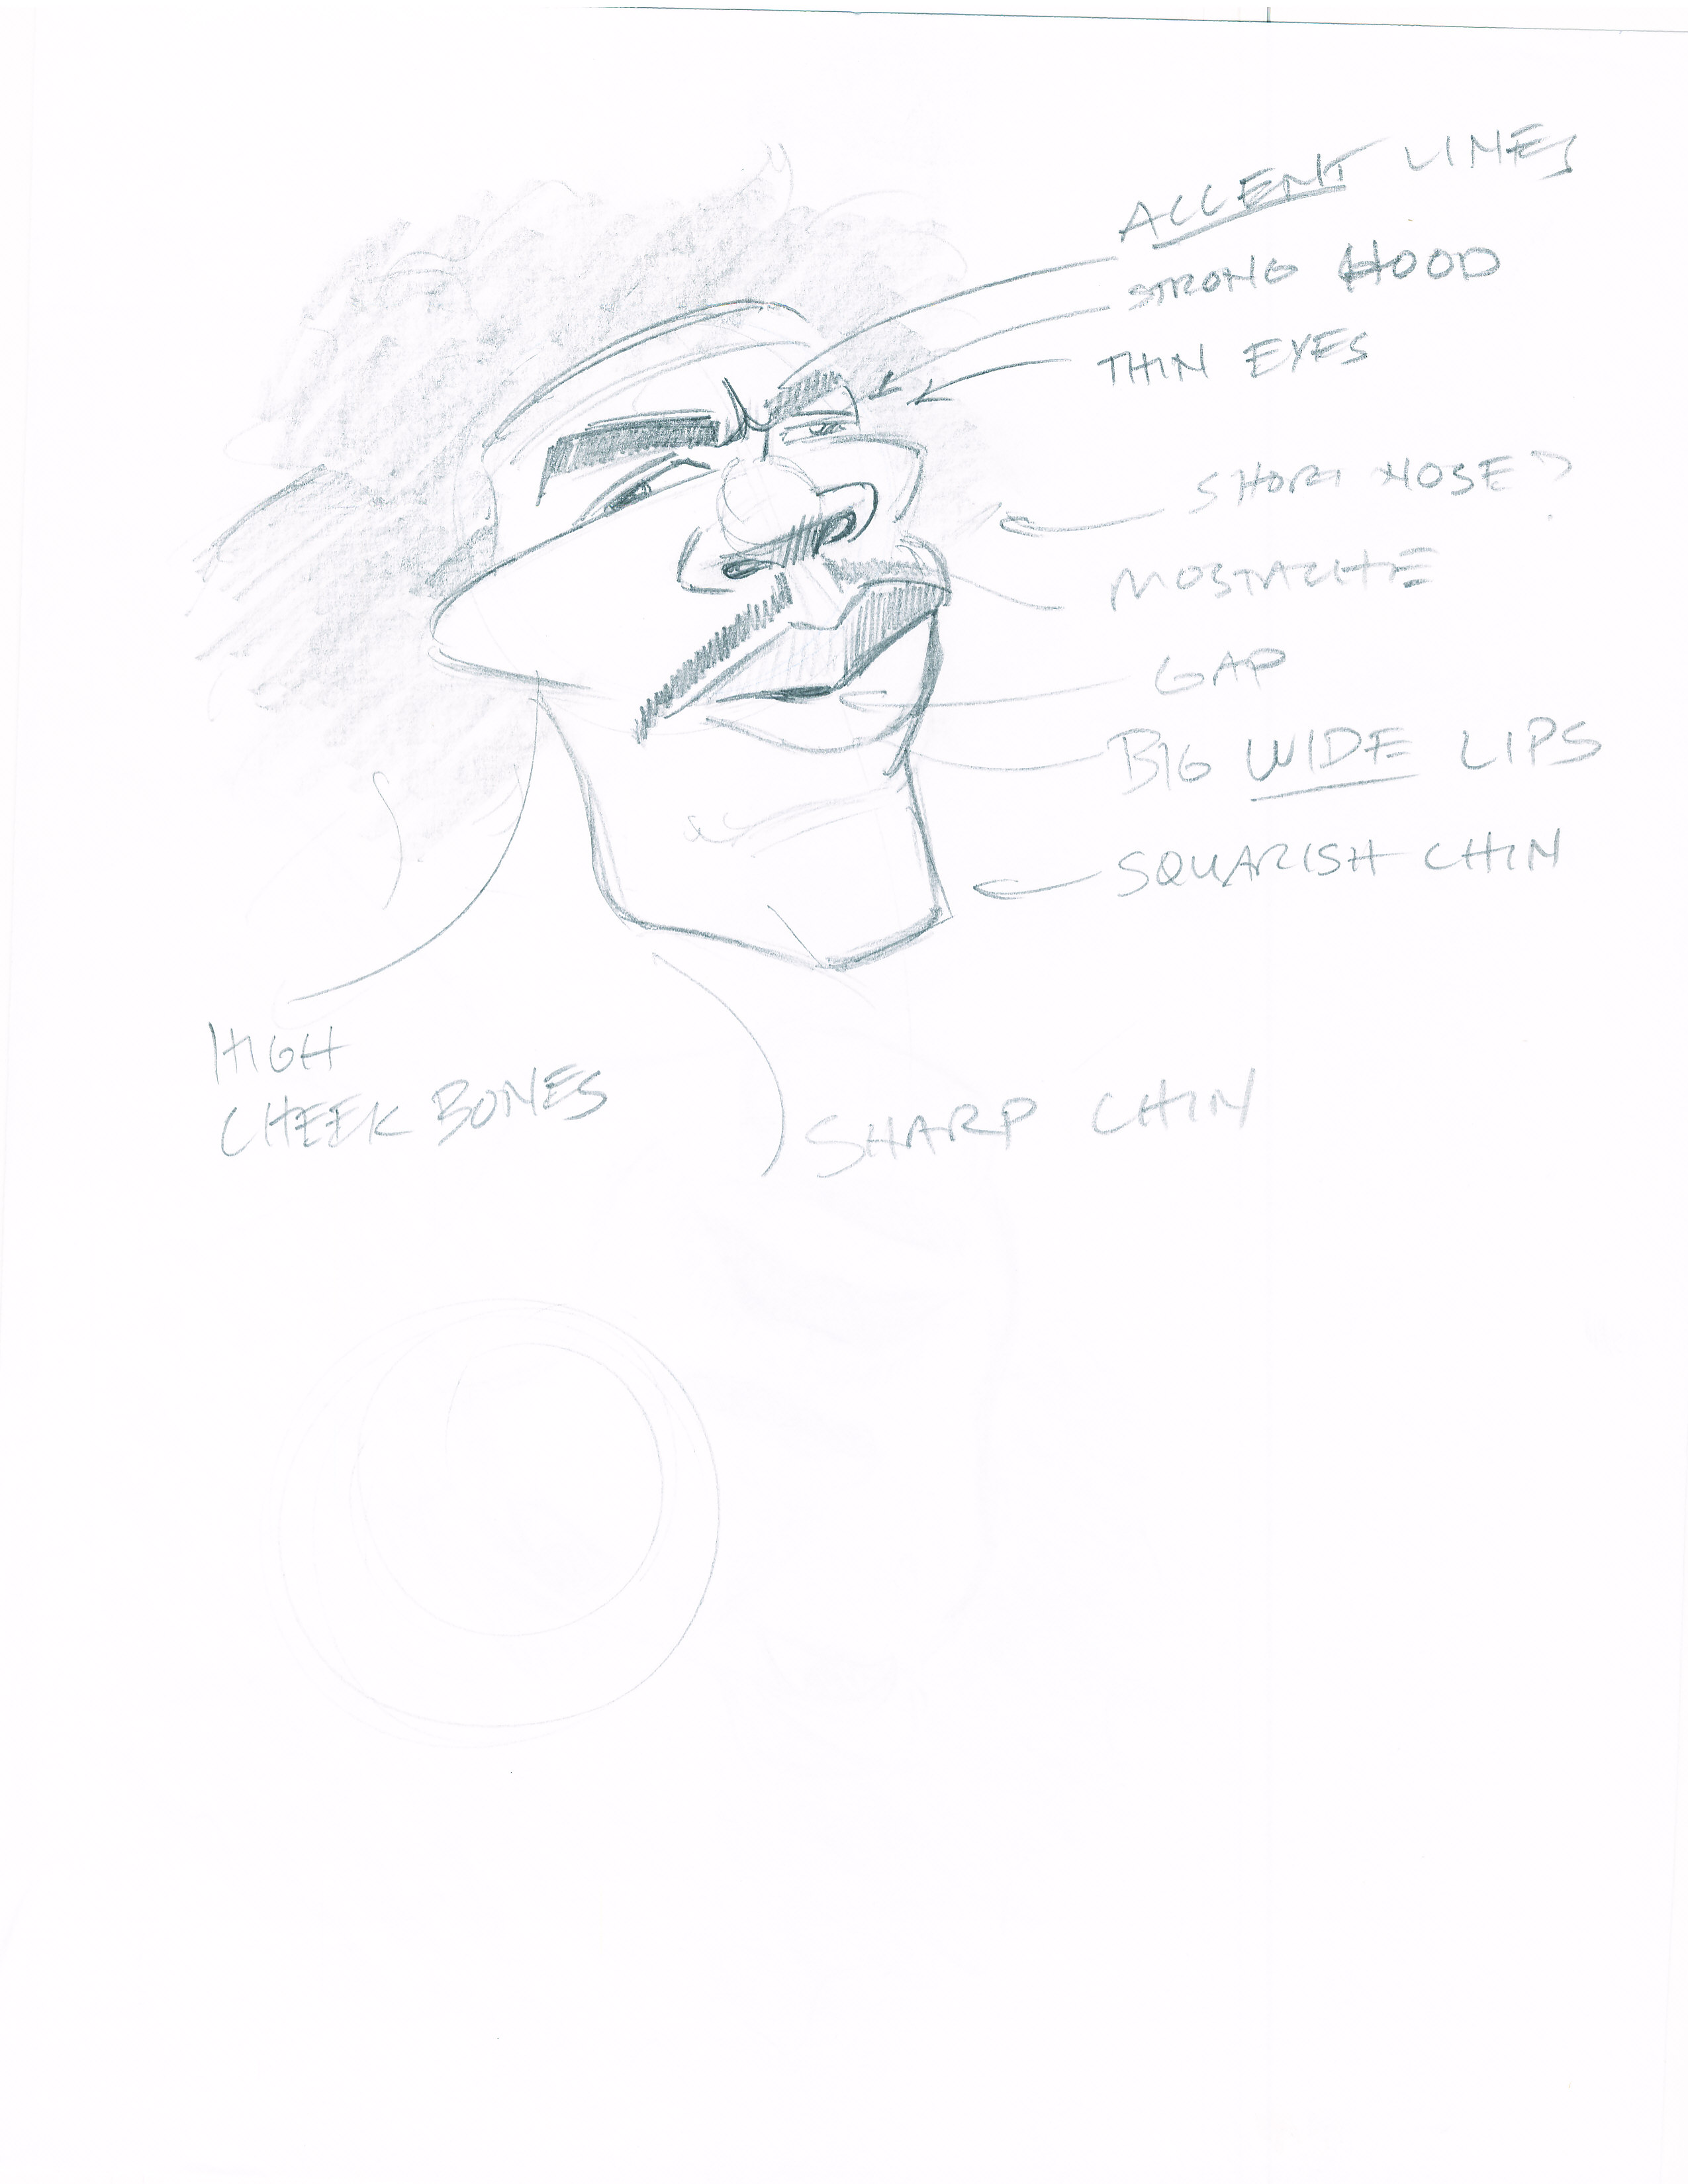 ACCENT LINES
STRONG HOOD
THIN EYES
SHORT NOSE
MOSTACHE
GAP
BIG WIDE LIPS
SQUARISH CHIN
HIGH
CHEEK BONES
SHARP CHIN